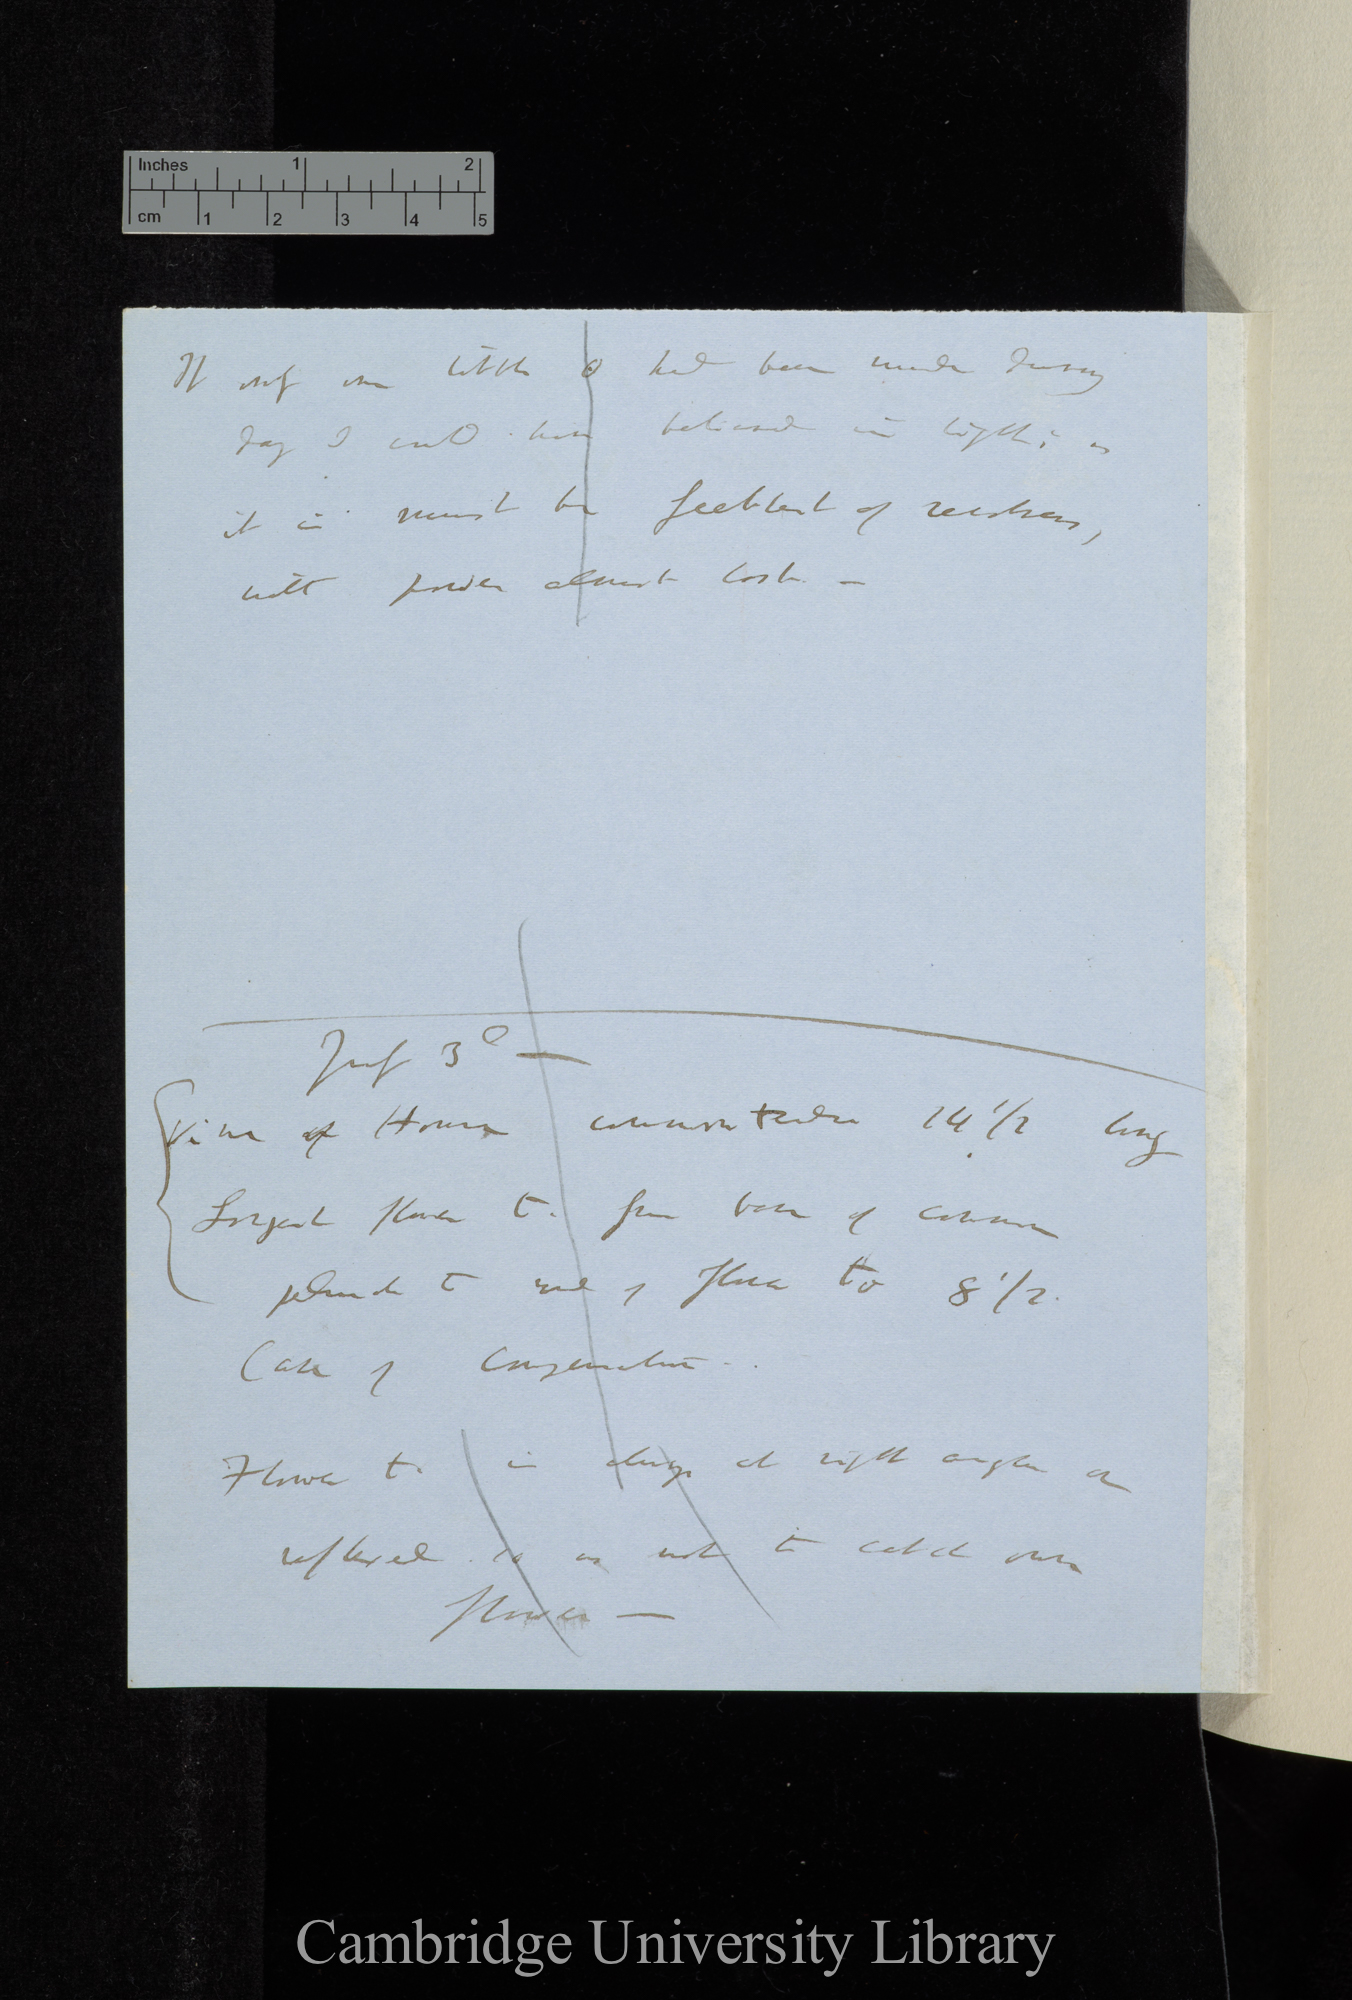 Inches 1 2
cm 1 2 3 4 5
If only one little o had been made during
day I could have believed in light; as
it is must be feeblest of revolvers,
with power almost lost. —
July 3d —
Vine of House common tendril 14 1/2 long
Longest flower t. from base of common
peduncle to end of flower to 8 1/2.
Case of Compensation.
Flower t. is always at right angles or
reflexed so as not to catch own
flower —
Cambridge University Library